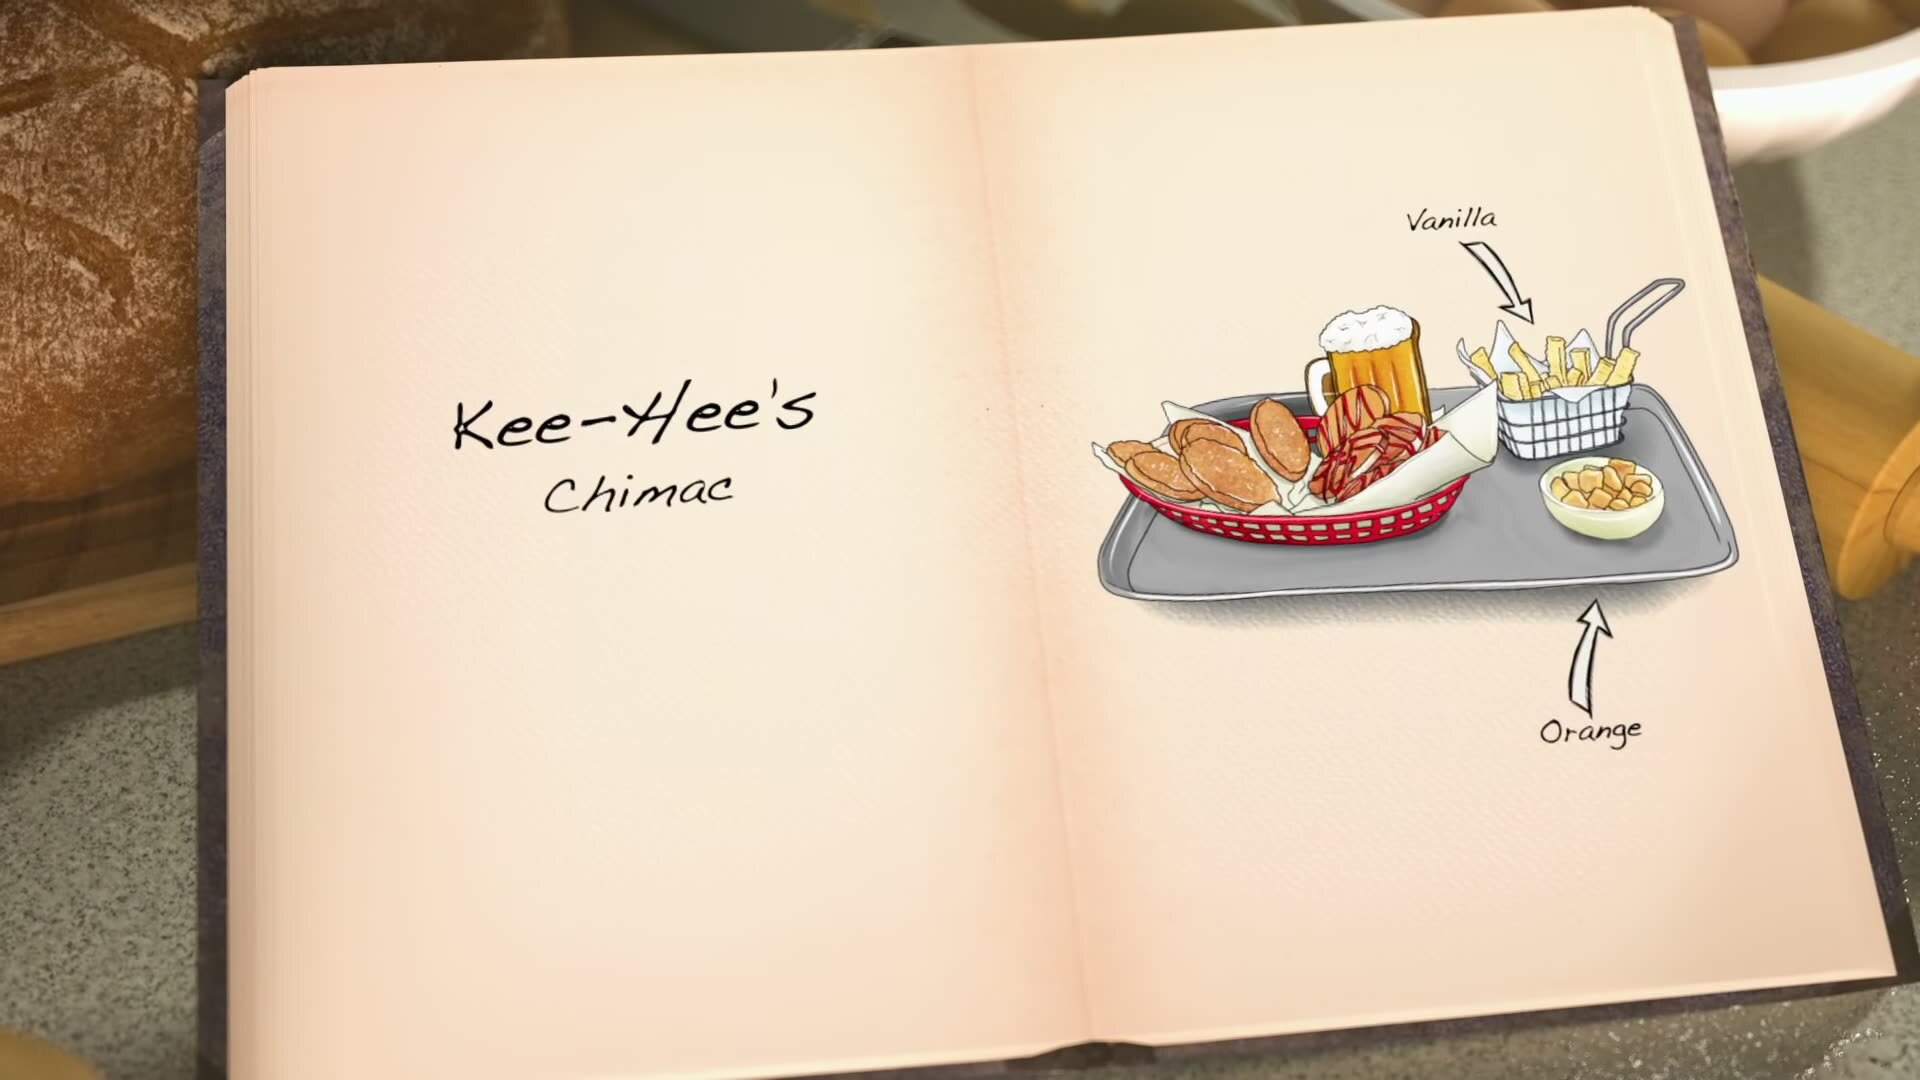 Kee-Hee's
Chimac
Vanilla
Orange